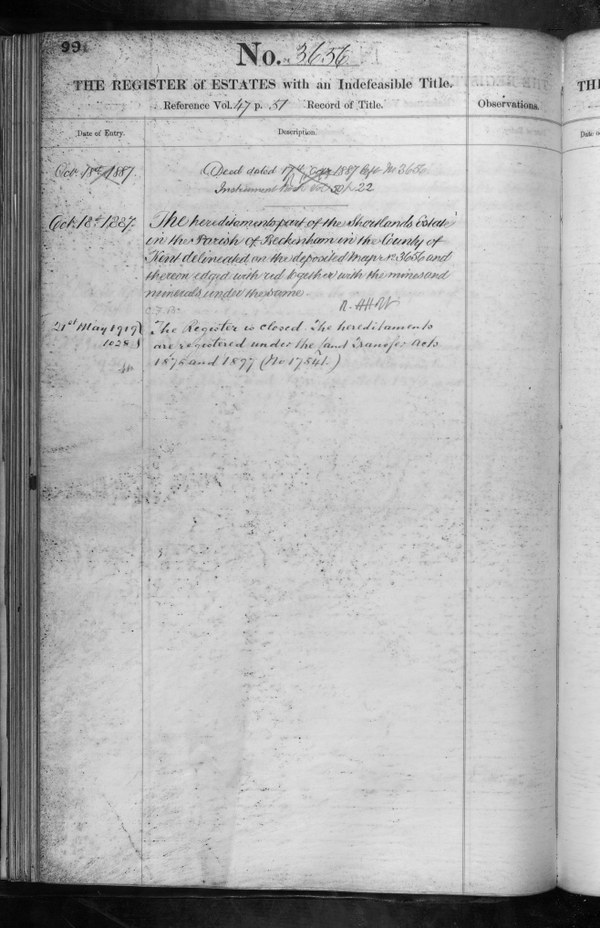 99
No. 3656
THE REGISTER of ESTATES with an Indefeasible Title.
Reference Vol. 47 p. 51 Record of Title.
Observations.
Date of Entry.
Description.
Oct. 18th 1887.
Deed dated 1887 Cops No 3656
Instrument Vol. 50 p. 22
Oct. 18th 1887.
The hereditaments part of the Shortlands Estate
in the Parish of Beckenham in the County of
Kent delineated on the deposited Map No. 3656 and
thereon edged with red together with the mines and
minerals under the same.
21st May 1919
1028
The Register is closed. The hereditaments
are registered under the Land Transfer Acts
1875 and 1897 (No 17541.)
TH
Date o